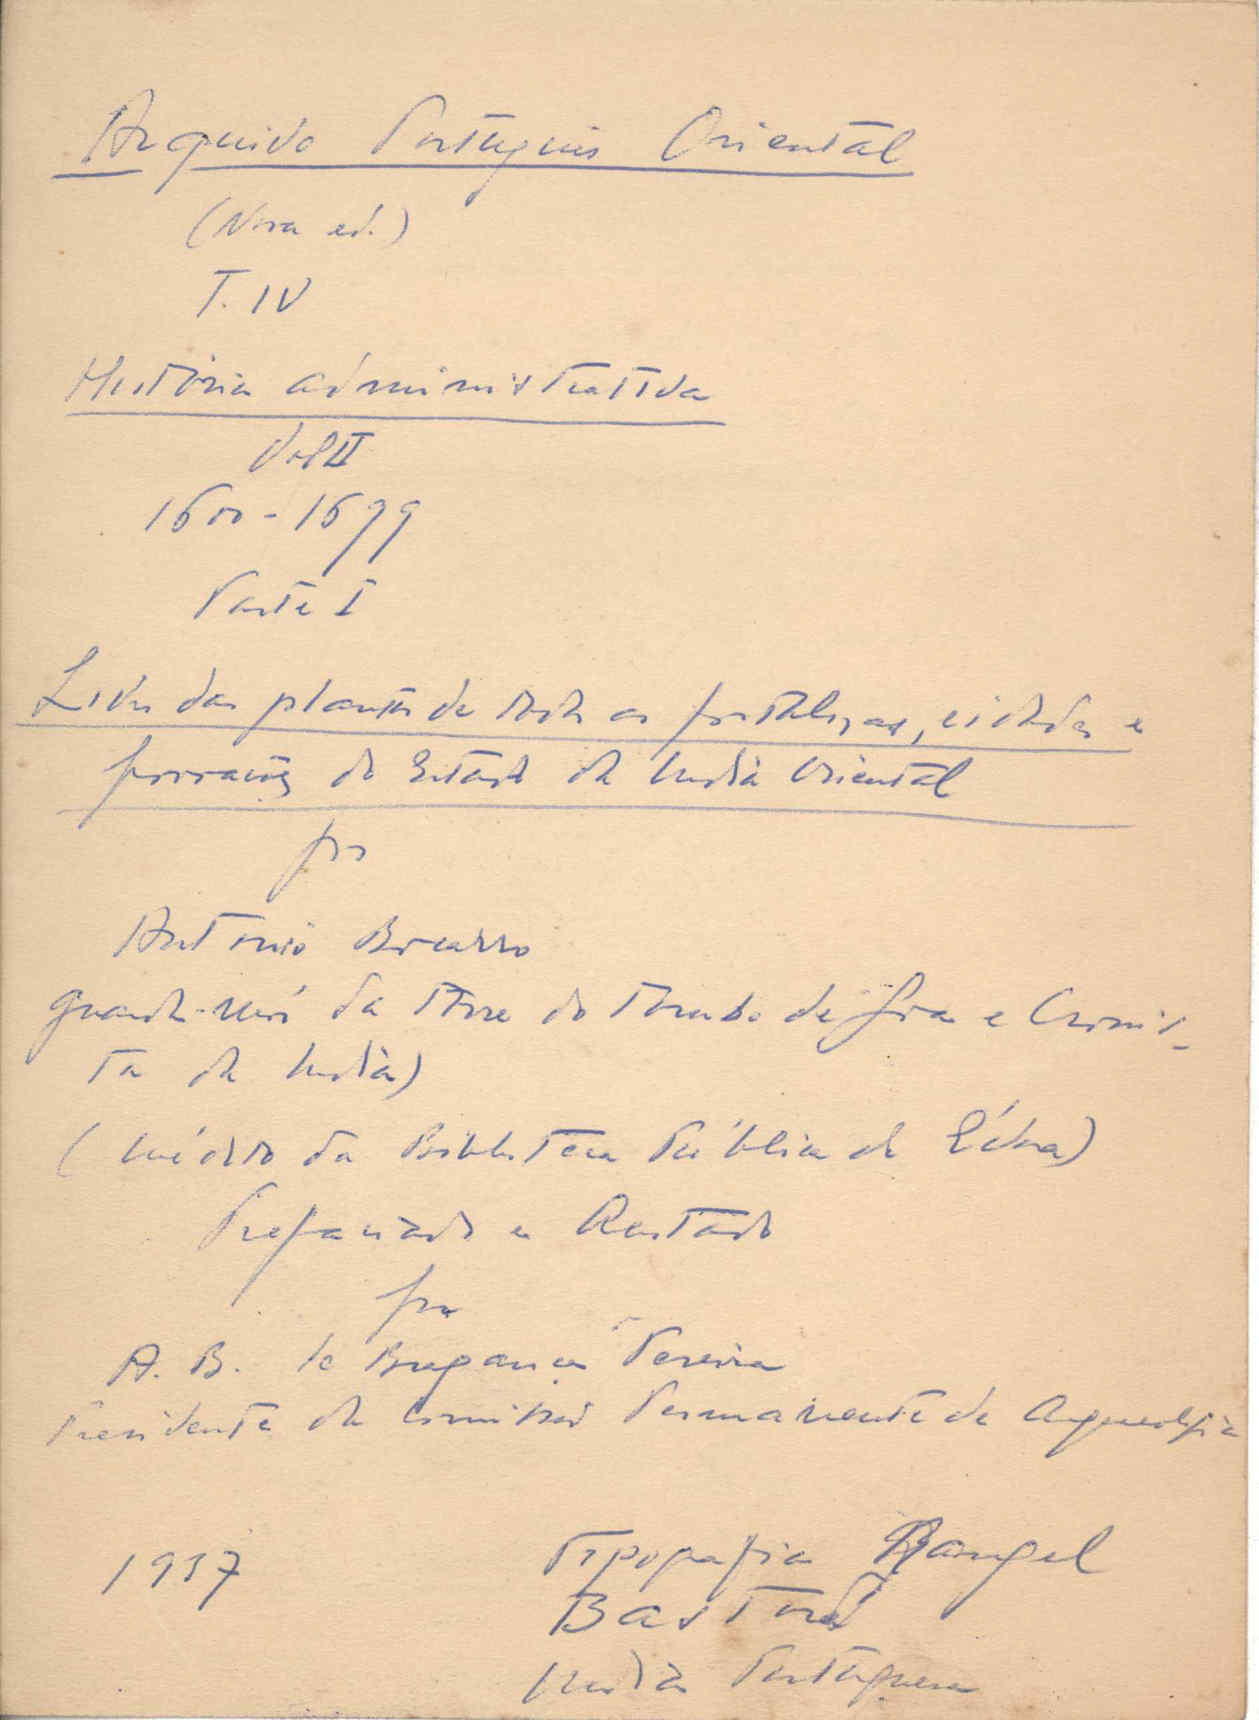 Arquivo Português Oriental
(Nova ed.)
T. IV
História administrativa
Vol II
1600-1699
Parte I
Livro das plantas de todas as fortalezas, cidades e
povoações do Estado da India Oriental
por
António Bocarro
guarda-mór da Torre do Tombo de Goa e Cronis-
ta da India)
(Inédito da Biblioteca Pública de Évora)
Prefaciado e
por
A. B. de Bragança Pereira
Presidente da Comissão Permanente de Arqueologia
1937
Tipografia Rangel
Bastorá
India Portuguesa